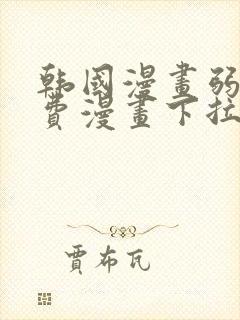 韩國漫畫弱
費漫畫下拉
賈布瓦